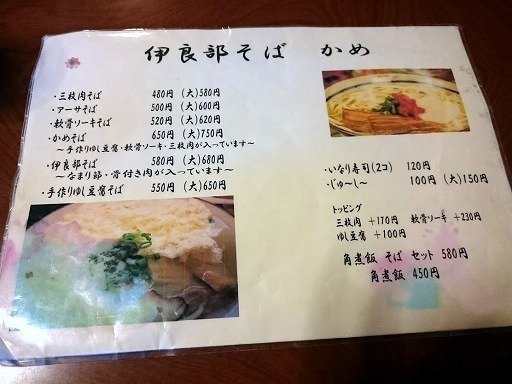 伊良部そば かめ
・三枚肉そば 480円 (大)580円
・アーサそば 500円 (大)600円
・軟骨ソーキそば 520円 (大)620円
・かめそば 650円 (大)750円
～手作りゆし豆腐・軟骨ソーキ・三枚肉が入っています～
・伊良部そば 580円 (大)680円
～なまり節・骨付き肉が入っています～
・手作りゆし豆腐そば 550円 (大)650円
・いなり寿司(2コ) 120円
・じゅ～し～ 100円 (大)150円
トッピング
三枚肉 +170円 軟骨ソーキ +230円
ゆし豆腐 +100円
角煮飯 そば セット 580円
角煮飯 450円